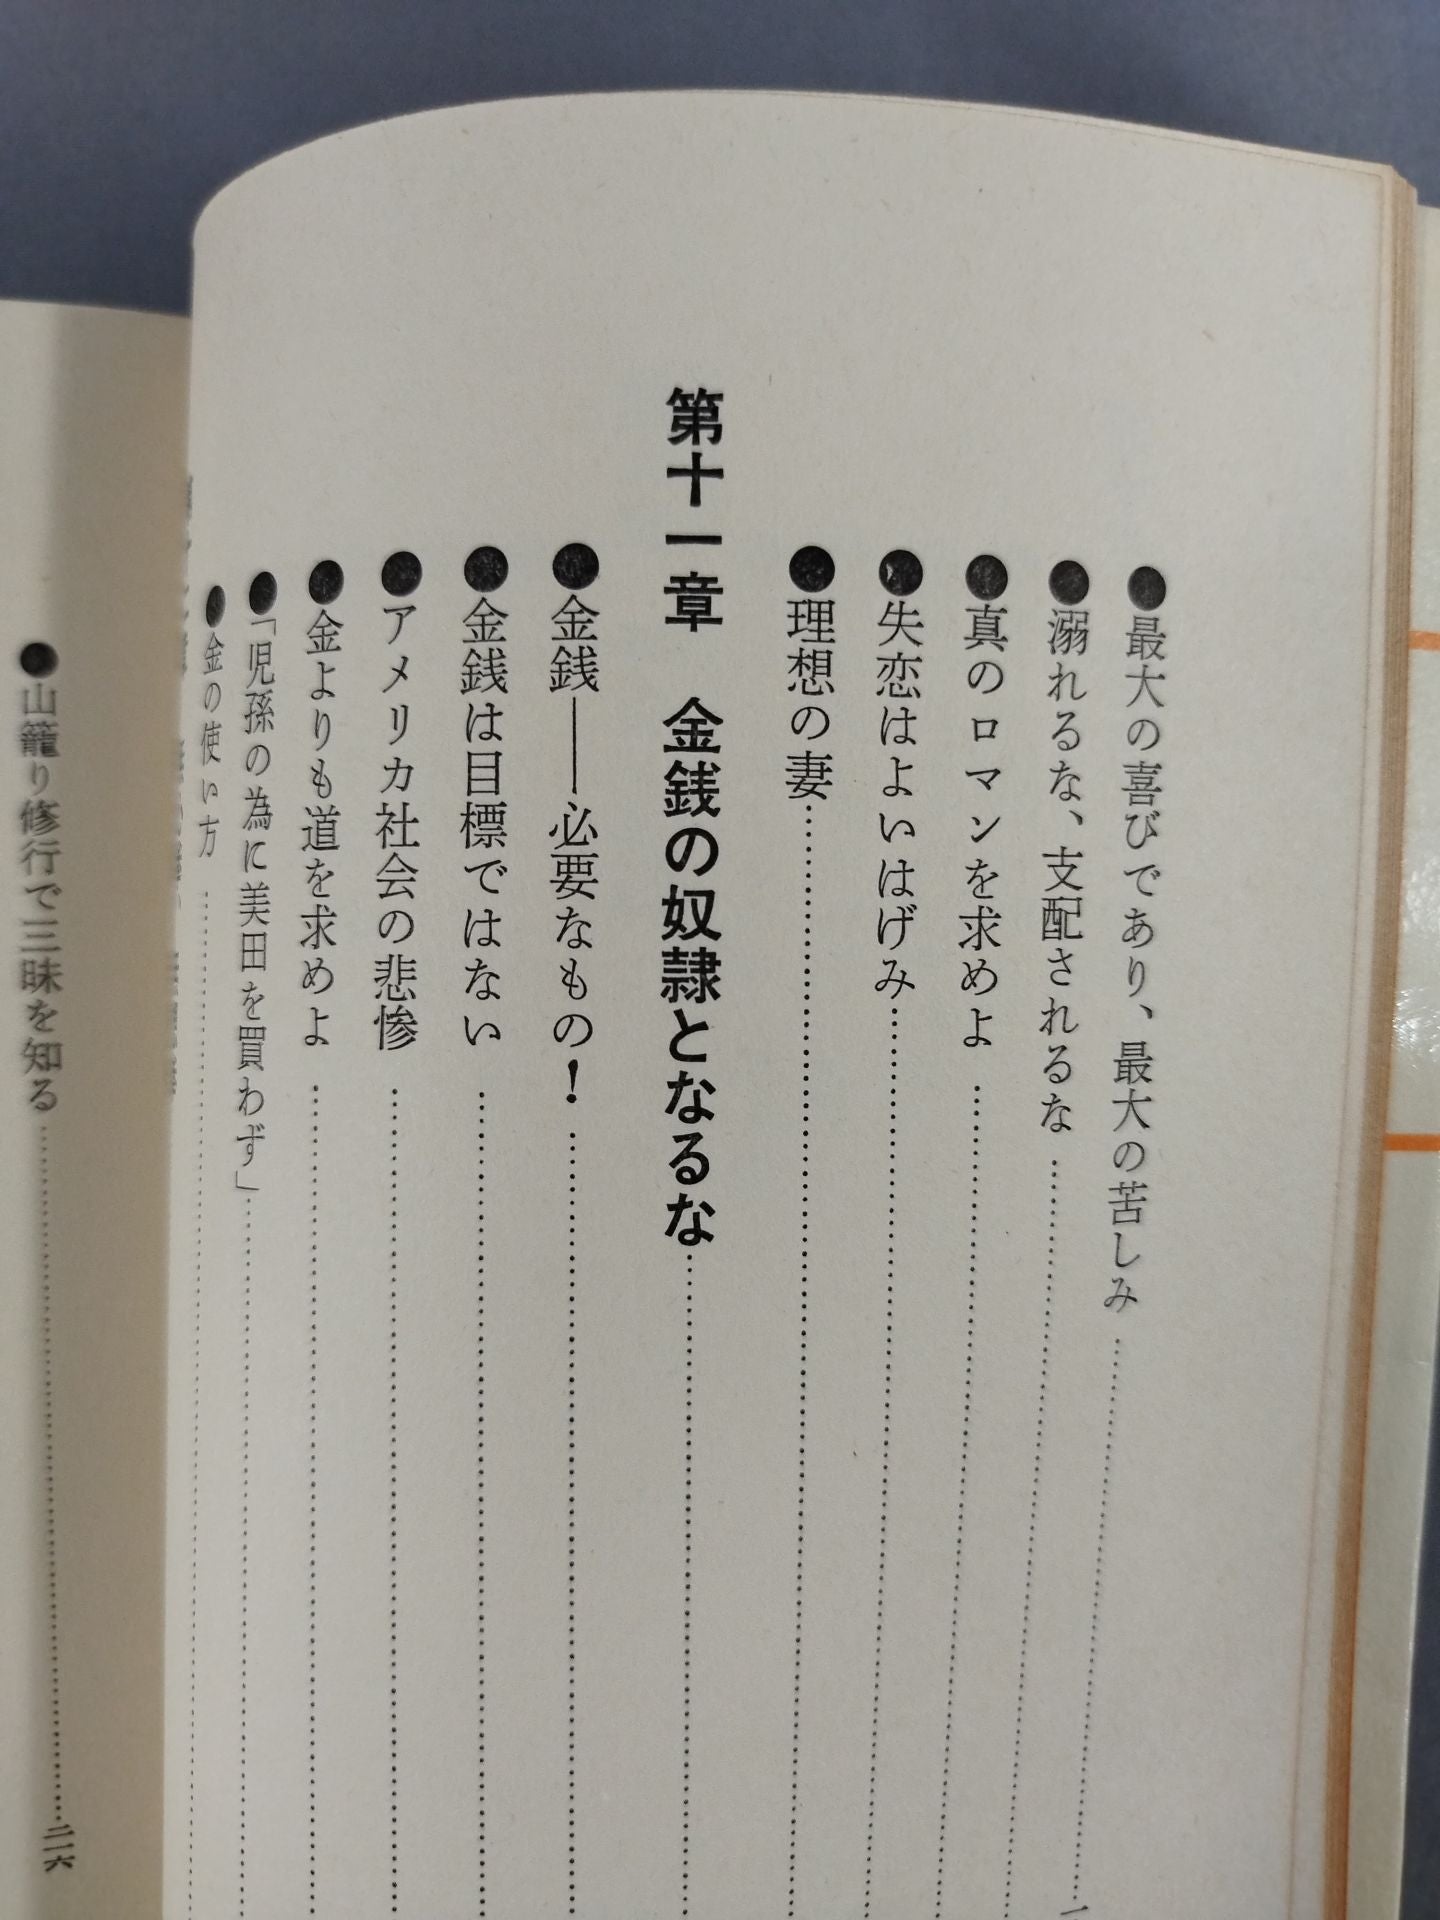 ●最大の喜びであり、最大の苦しみ
●溺れるな、支配されるな
●真のロマンを求めよ
●失恋はよいはげみ
●理想の妻
第十一章 金銭の奴隷となるな
●金銭――必要なもの！
●金銭は目標ではない
●アメリカ社会の悲惨
●金よりも道を求めよ
●「児孫の為に美田を買わず」
●金の使い方
●山籠り修行で三昧を知る 二一六